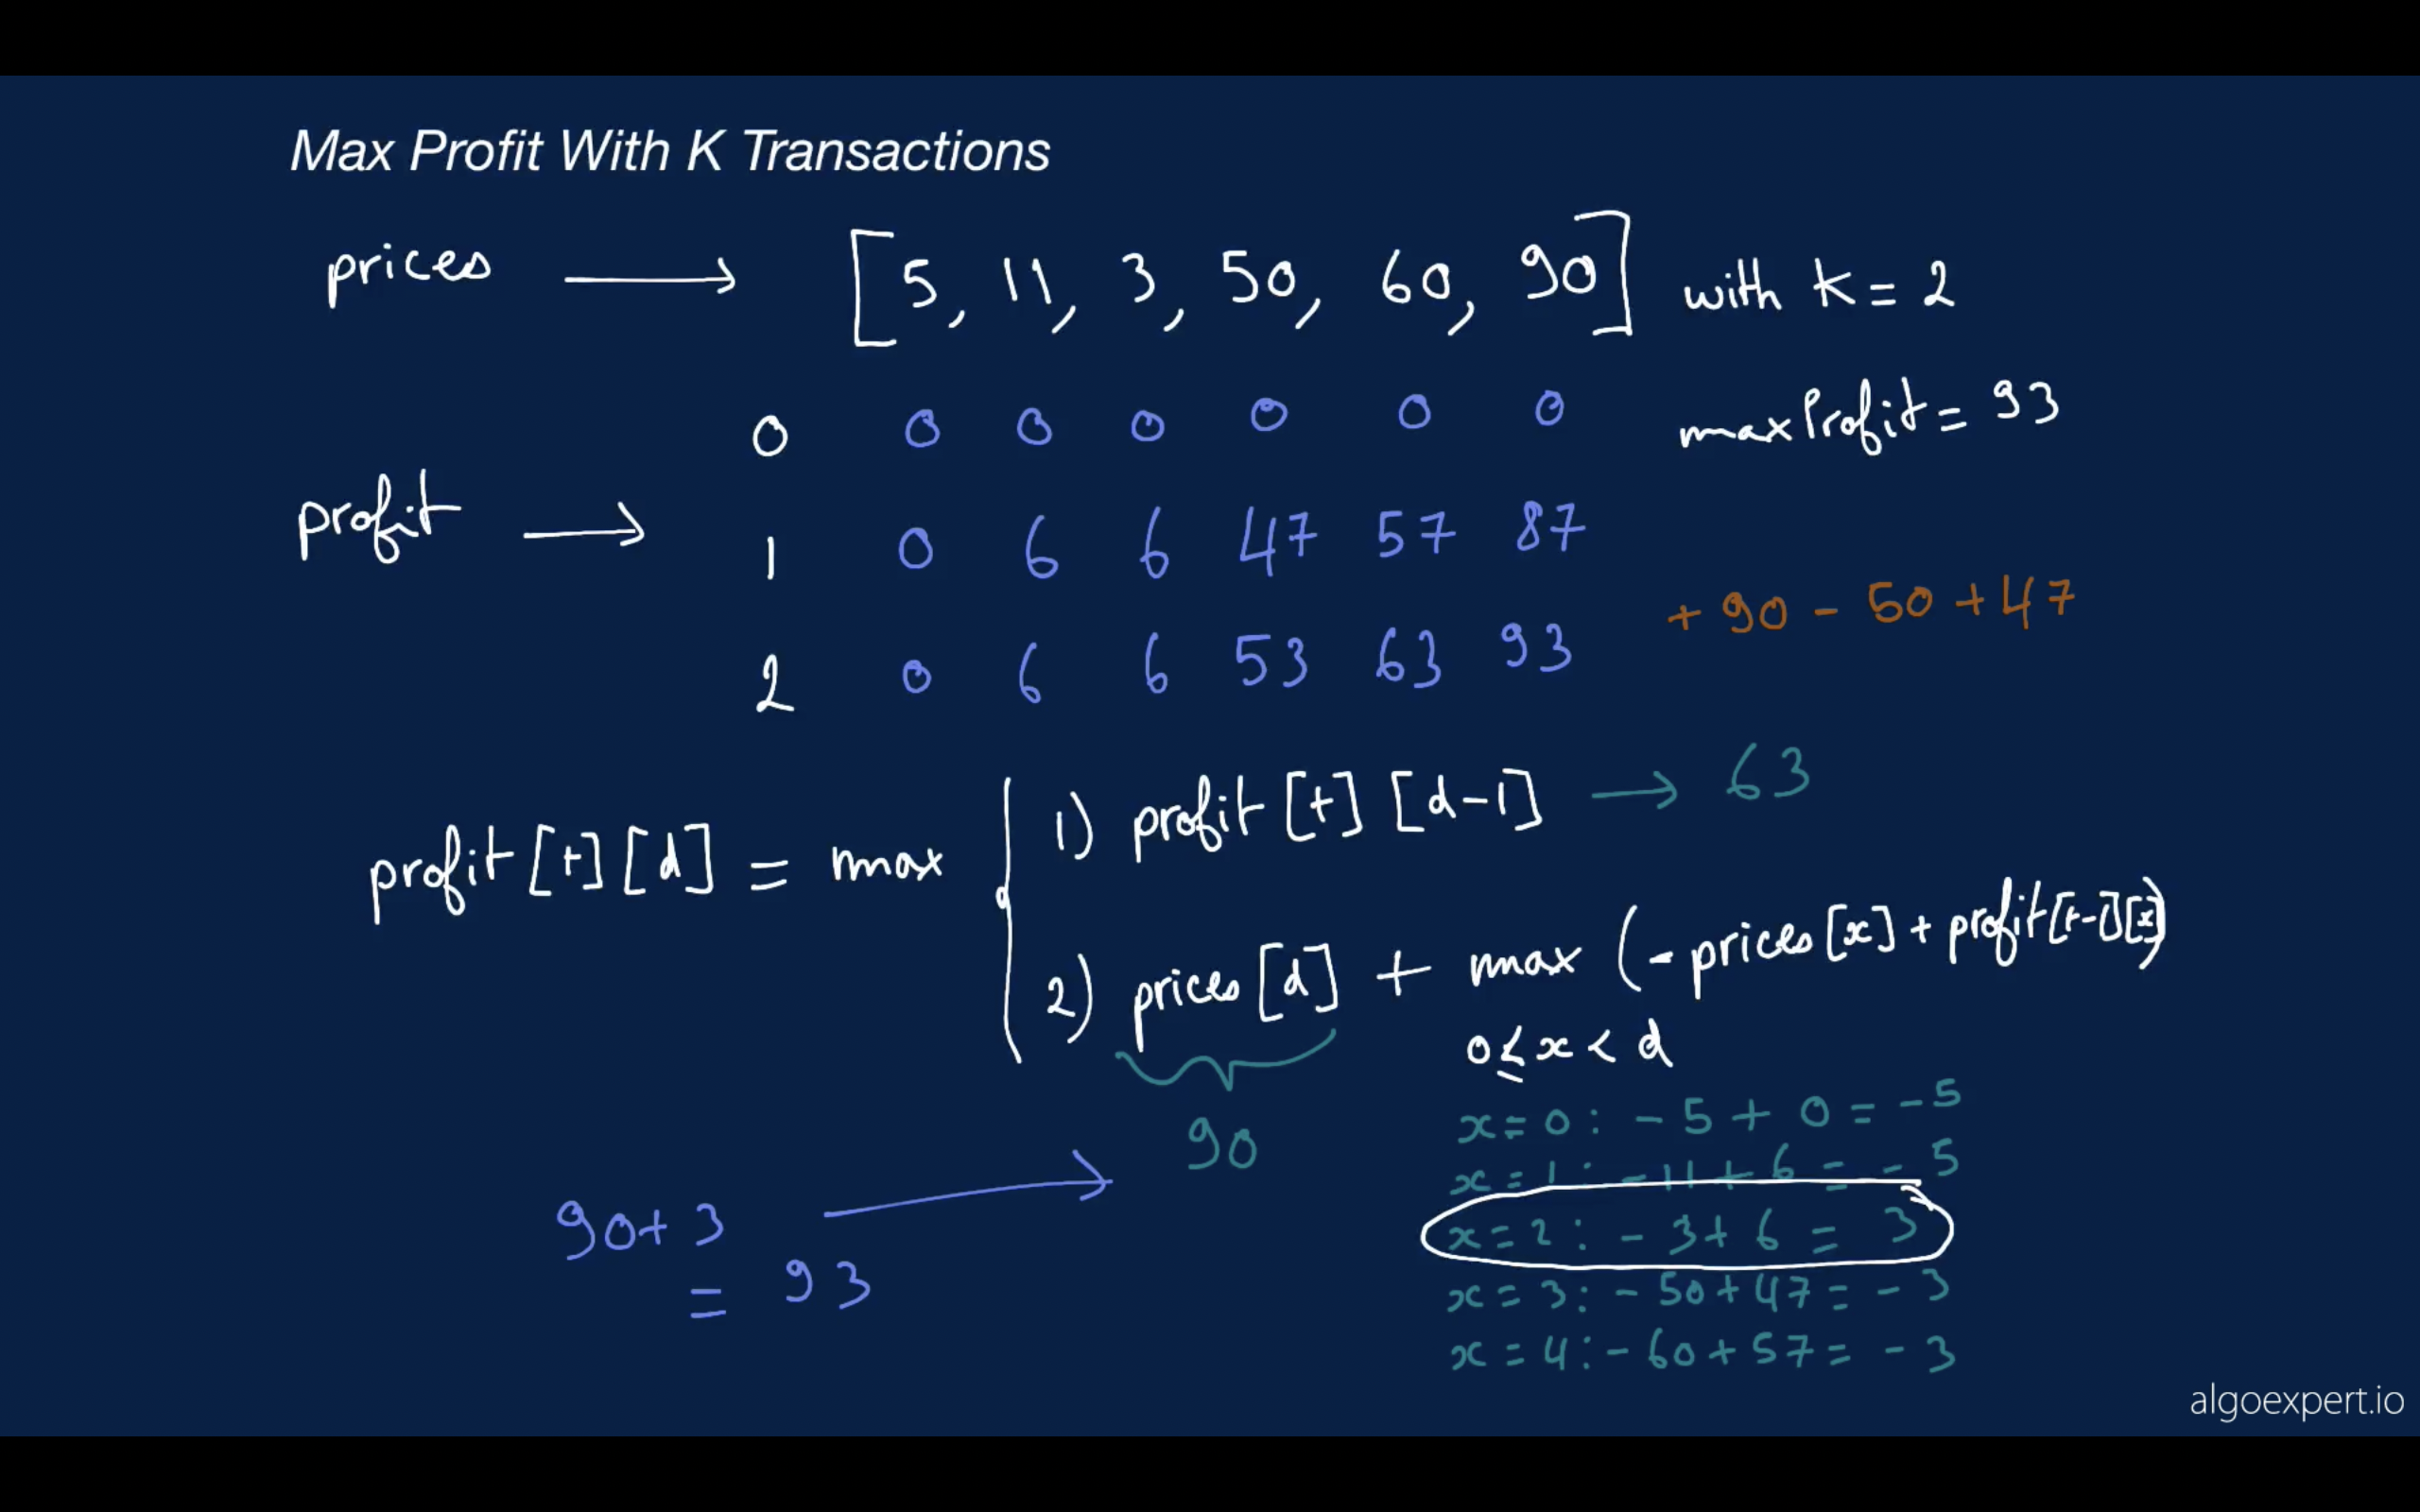 Max Profit With K Transactions
prices → [5, 11, 3, 50, 60, 90] with k = 2
0 0 0 0 0 0 0 maxProfit = 93
profit → 1 0 6 6 47 57 87
+ 90 - 50 + 47
2 0 6 6 53 63 93
profit [t] [d] = max { 1) profit [t] [d-1] → 63
2) prices [d] + max (-prices [x] + profit [t-1] [x])
0 ≤ x < d
90
x = 0 : - 5 + 0 = - 5
x = 1 : - 11 + 6 = - 5
x = 2 : - 3 + 6 = 3
x = 3 : - 50 + 47 = - 3
x = 4 : - 60 + 57 = - 3
90 + 3 →
= 93
algoexpert.io